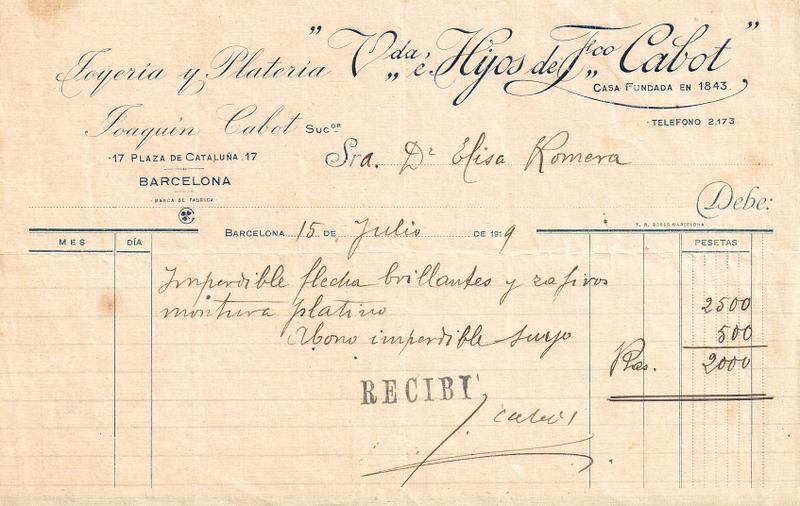 Joyeria y Plateria "Vda. é Hijos de Fco. Cabot"
CASA FUNDADA EN 1843
Joaquín Cabot Sucor
TELEFONO 2.173
17 PLAZA DE CATALUÑA. 17
Sra. Da Elisa Romera
BARCELONA
MARCA DE FABRICA
Debe:
BARCELONA 15 DE Julio DE 1919
MES DÍA PESETAS
Imperdible flecha brillantes y zafiros
montura platino 2500
Abono imperdible suyo 500
Ptas. 2000
RECIBI
J. Cabot